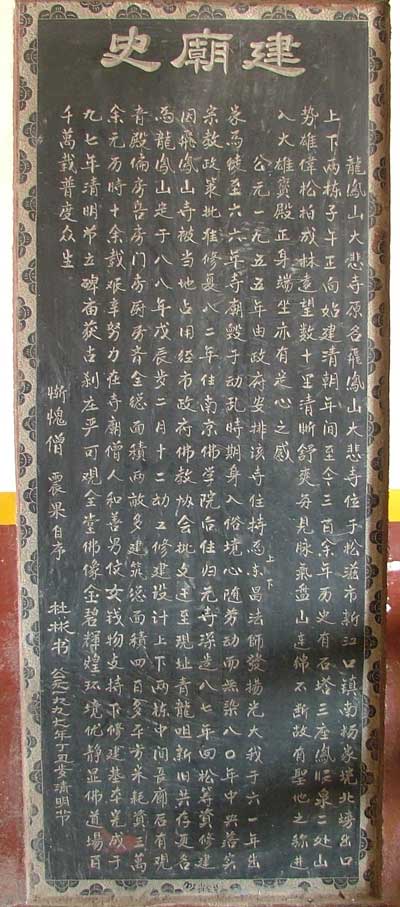 建廟史
龍鳳山大悲寺原名飛鳳山大悲寺位于松滋市新江口鎮南楊家垸北場出口
上下两栋子午正向始建清朝年间至今三百余年历史有石塔三座鳳眼泉二处山
势雄偉松柏成林遠望数十里清晰舒爽每見脉氣盘山连绵不断故有聖地之称进
入大雄寶殿正身端坐亦有爱心之感
公元一九五五年由政府安排該寺住持上忍下宗昌法師發揚光大我于六一年出
家為徒至六六年寺廟毁于动乱時期身入俗境心随劳动而無染八〇年中央落实
宗教政策批准修复八二年住南京佛学院后住归元寺深造八七年回松筹算修建
因飛鳳山寺被当地占用经市政府佛教协会批文迁至現址青龍咀新旧共存更名
為龍鳳山定于八八年戊辰岁二月十二动工修建設计上下两栋中间長廊后有觀
音殿偏房客房门房厨房斋全总面積两畝多建筑总面積四百多平方米耗资三萬
余元历時十余载艰辛努力在寺廟僧人和善男信女钱物支持下修建基本呈成于
九七年清明节立碑庙获古刹庄严可觀全堂佛像金碧輝煌环境优静显佛道場百
千萬载普度众生
惭愧僧 震果自序
杜彬书 公元一九九七年丁丑岁清明节